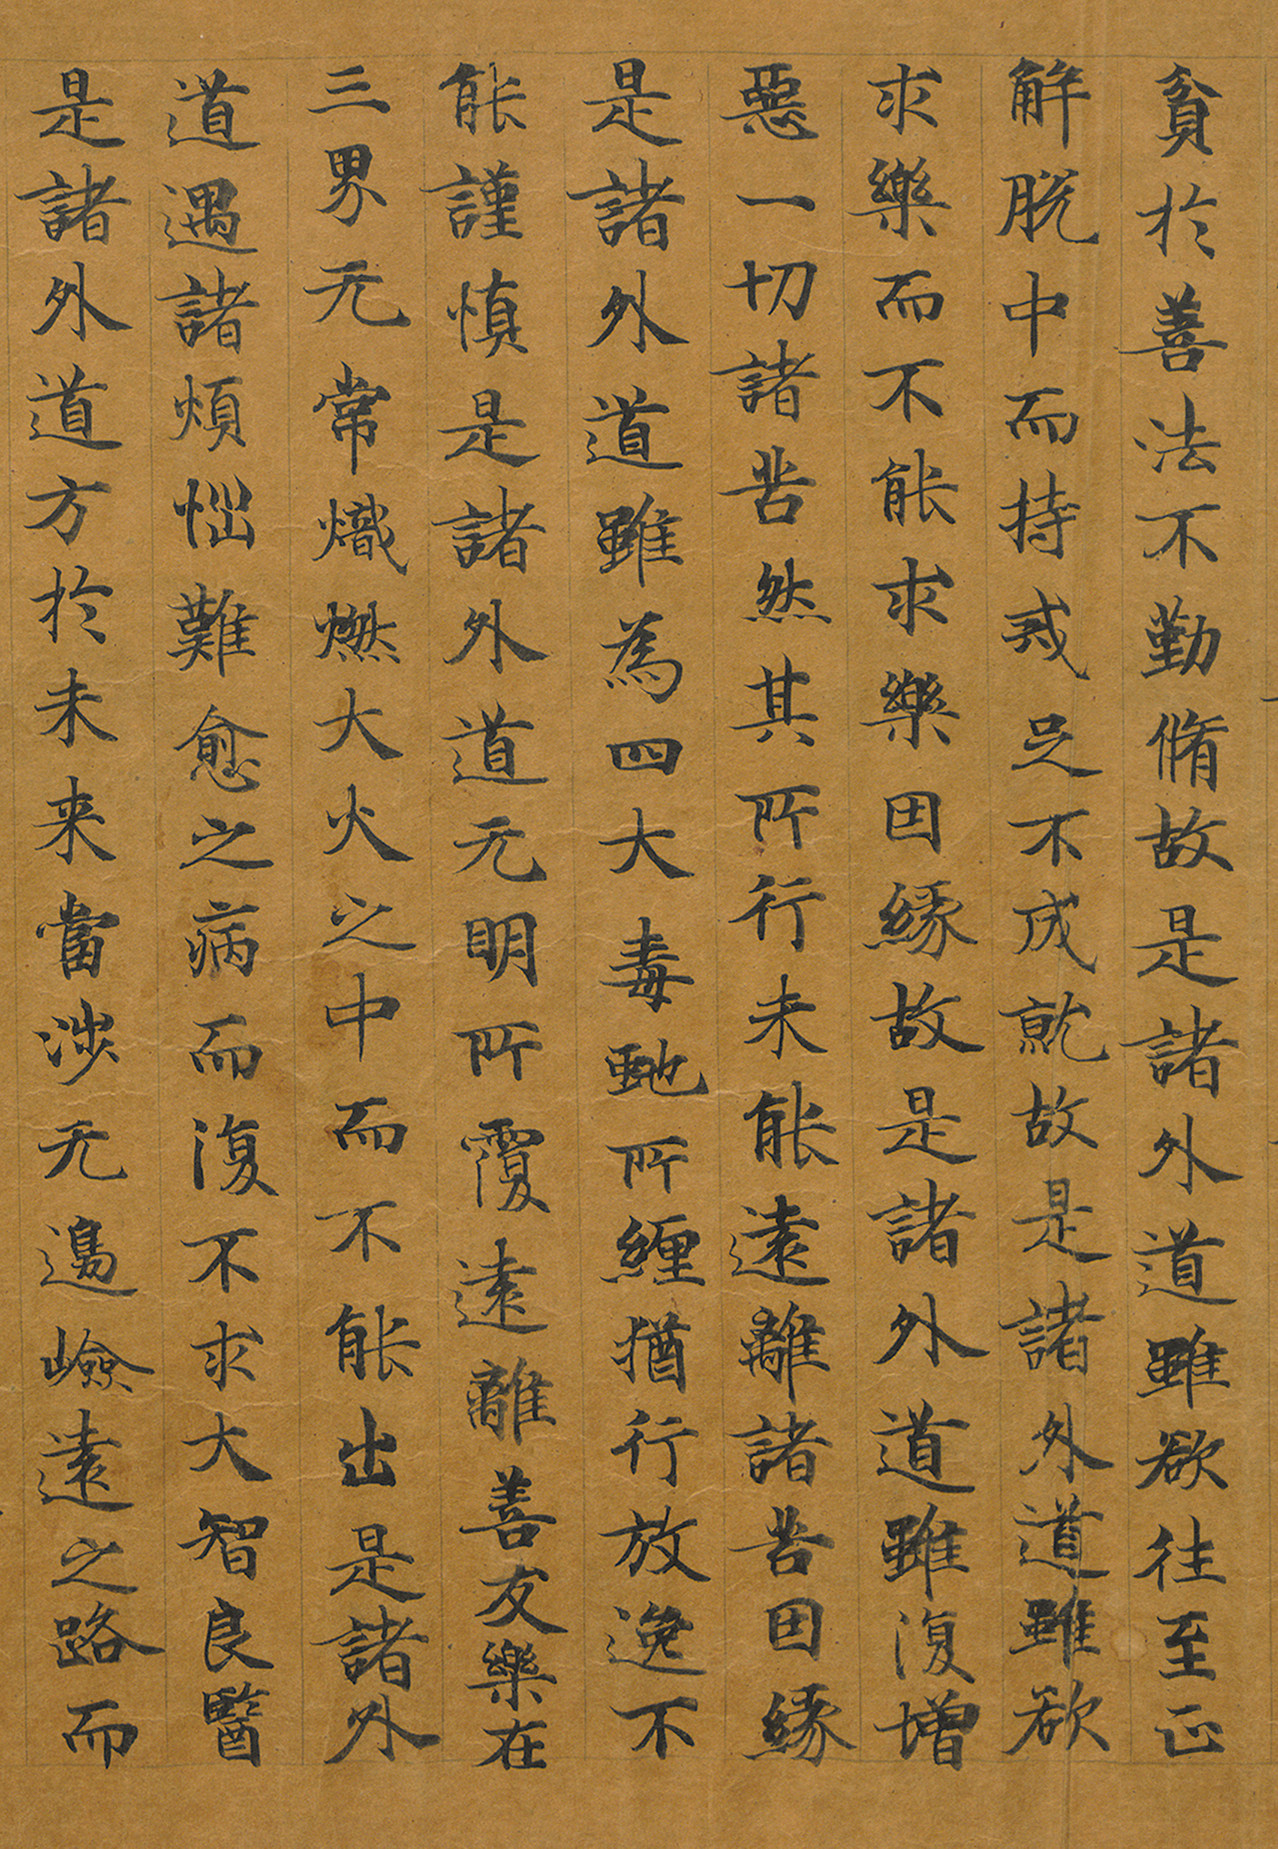 貧於善法不勤脩故是諸外道雖欲往至正
解脫中而持戒足不成就故是諸外道雖欲
求樂而不能求樂因緣故是諸外道雖復增
惡一切諸苦然其所行未能遠離諸苦因緣
是諸外道雖為四大毒虵所纏猶行放逸不
能謹慎是諸外道无明所覆遠離善友樂在
三界无常熾燃大火之中而不能出是諸外
道遇諸煩惱難愈之病而復不求大智良醫
是諸外道方於未來當涉无邊嶮遠之路而